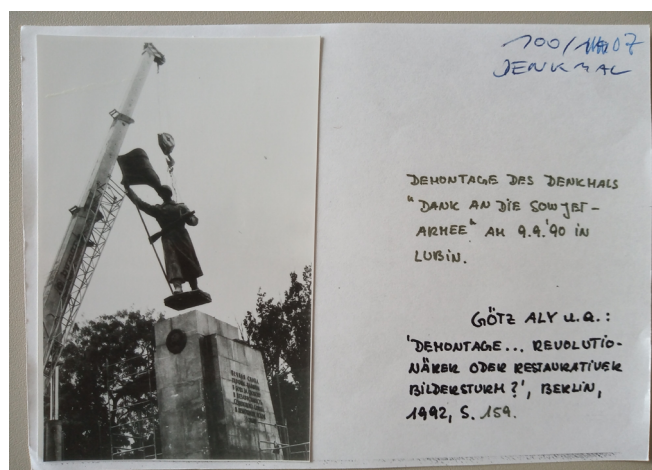 100/ 07
DENKMAL
DEMONTAGE DES DENKMALS
"DANK AN DIE SOWJET-
ARMEE" AM 9.9.'90 IN
LUBIN.
GÖTZ ALY U.A.:
'DEMONTAGE... REVOLUTIO-
NÄRER ODER RESTAURATIVER
BILDERSTURM?', BERLIN,
1992, S. 159.